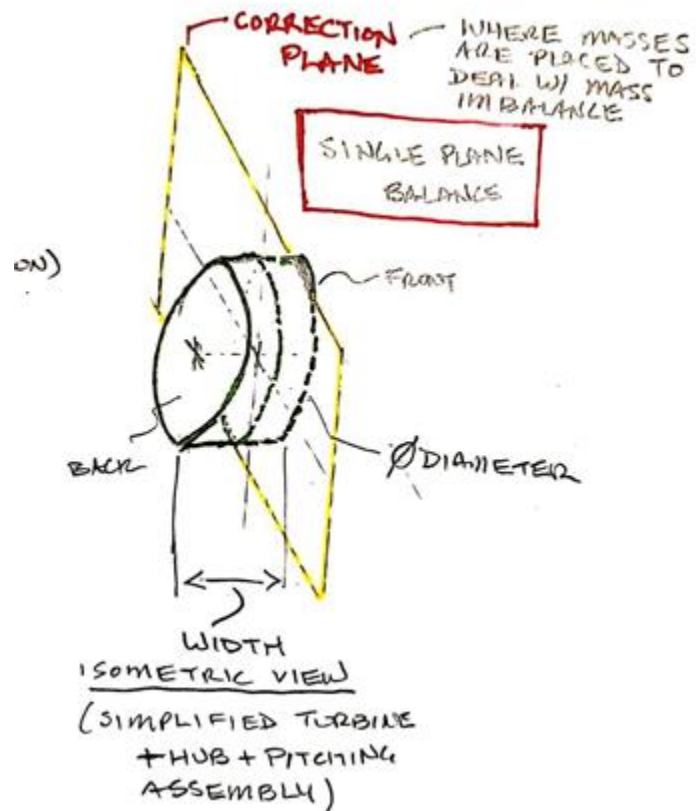 CORRECTION
PLANE
WHERE MASSES
ARE PLACED TO
DEAL W/ MASS
IMBALANCE
SINGLE PLANE
BALANCE
ON)
FRONT
BACK
Ø DIAMETER
WIDTH
ISOMETRIC VIEW
(SIMPLIFIED TURBINE
+ HUB + PITCHING
ASSEMBLY)